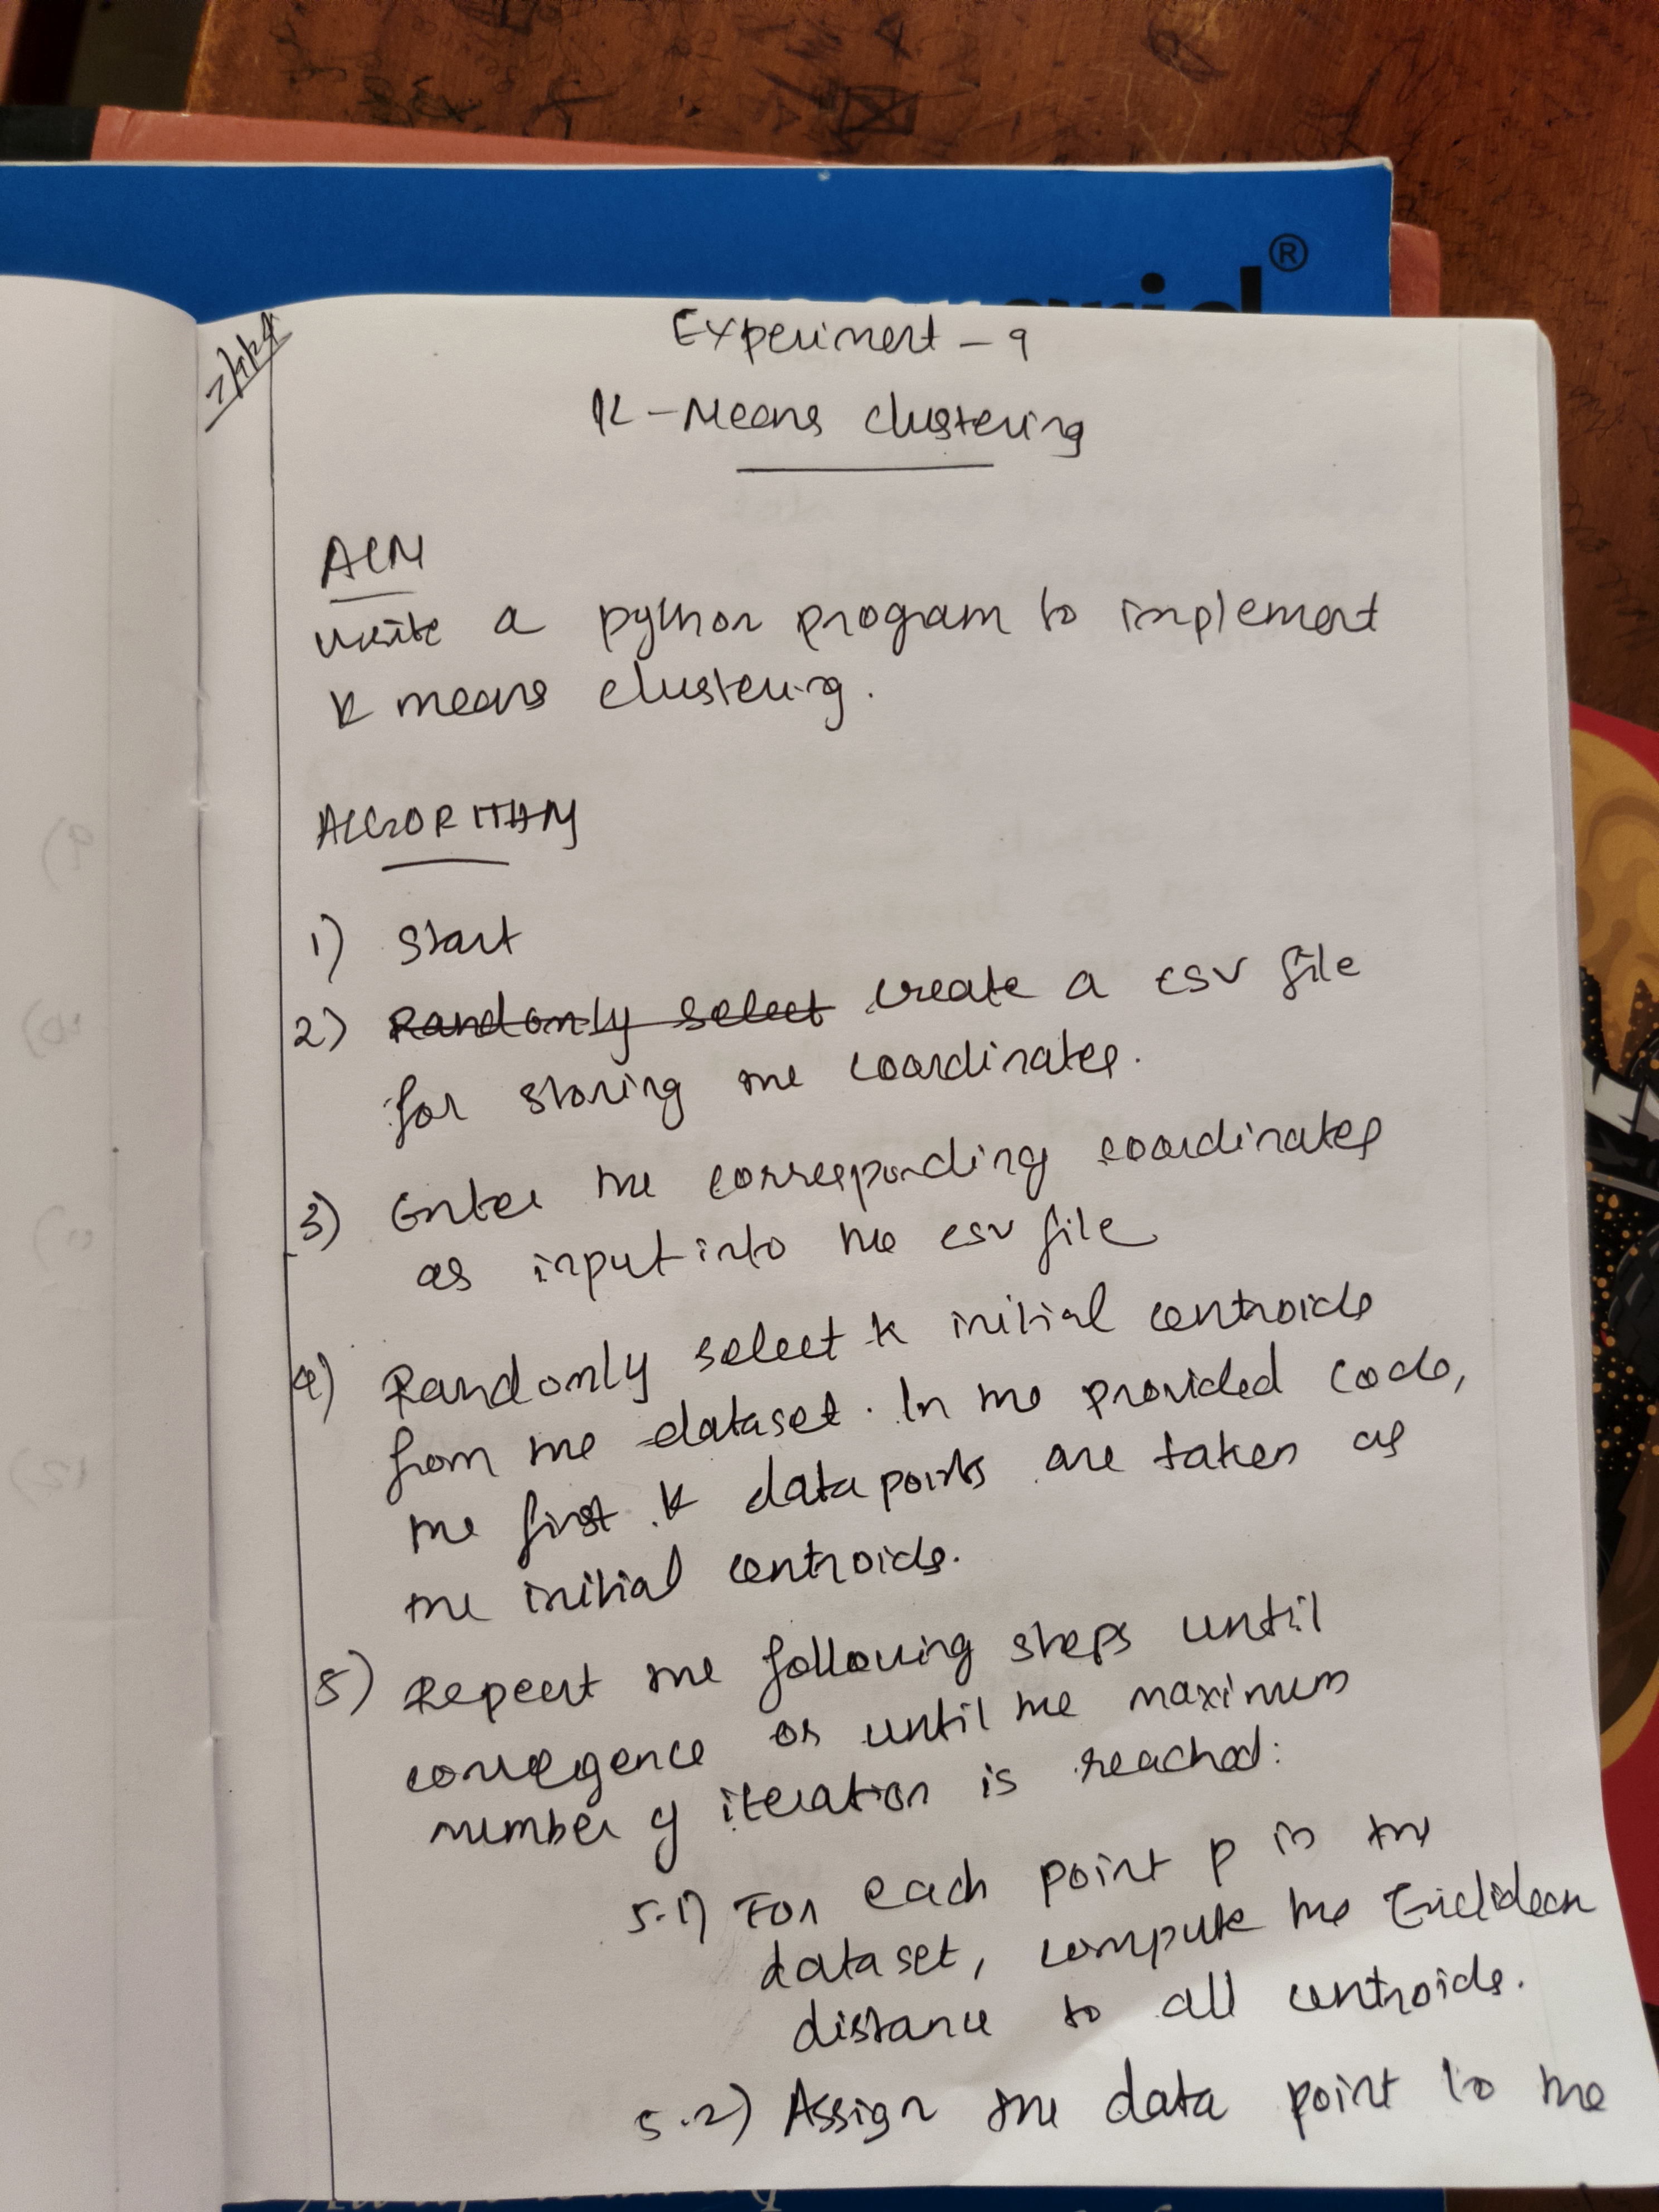 Experiment - 9
K-Means clustering
AIM
write a python program to implement
k means clustering.
ALGORITHM
1) Start
2) Randomly select create a csv file
for storing the coordinates.
3) Enter the corresponding coordinates
as input into the csv file
4) Randomly select k initial centroids
from the dataset. In the provided code,
the first k data points are taken as
the initial centroids.
5) Repeat the following steps until
convergence or until the maximum
number of iteration is reached:
5.1) For each point p in the
dataset, compute the Euclidean
distance to all centroids.
5.2) Assign the data point to the
®